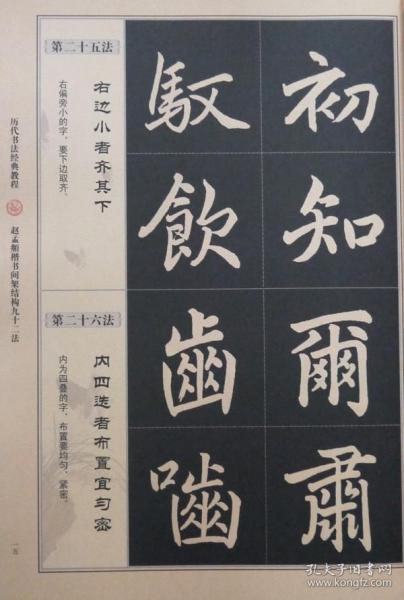 初知
馭飲
第二十五法
右边小者齐其下
右偏旁小的字，要下边取齐。
爾肅
齒嚙
第二十六法
内四迭者布置宜匀密
内为四叠的字，布置要均匀、紧密。
历代书法经典教程
赵孟頫楷书间架结构九十二法
一五
孔夫子旧书网
www.kongfz.com